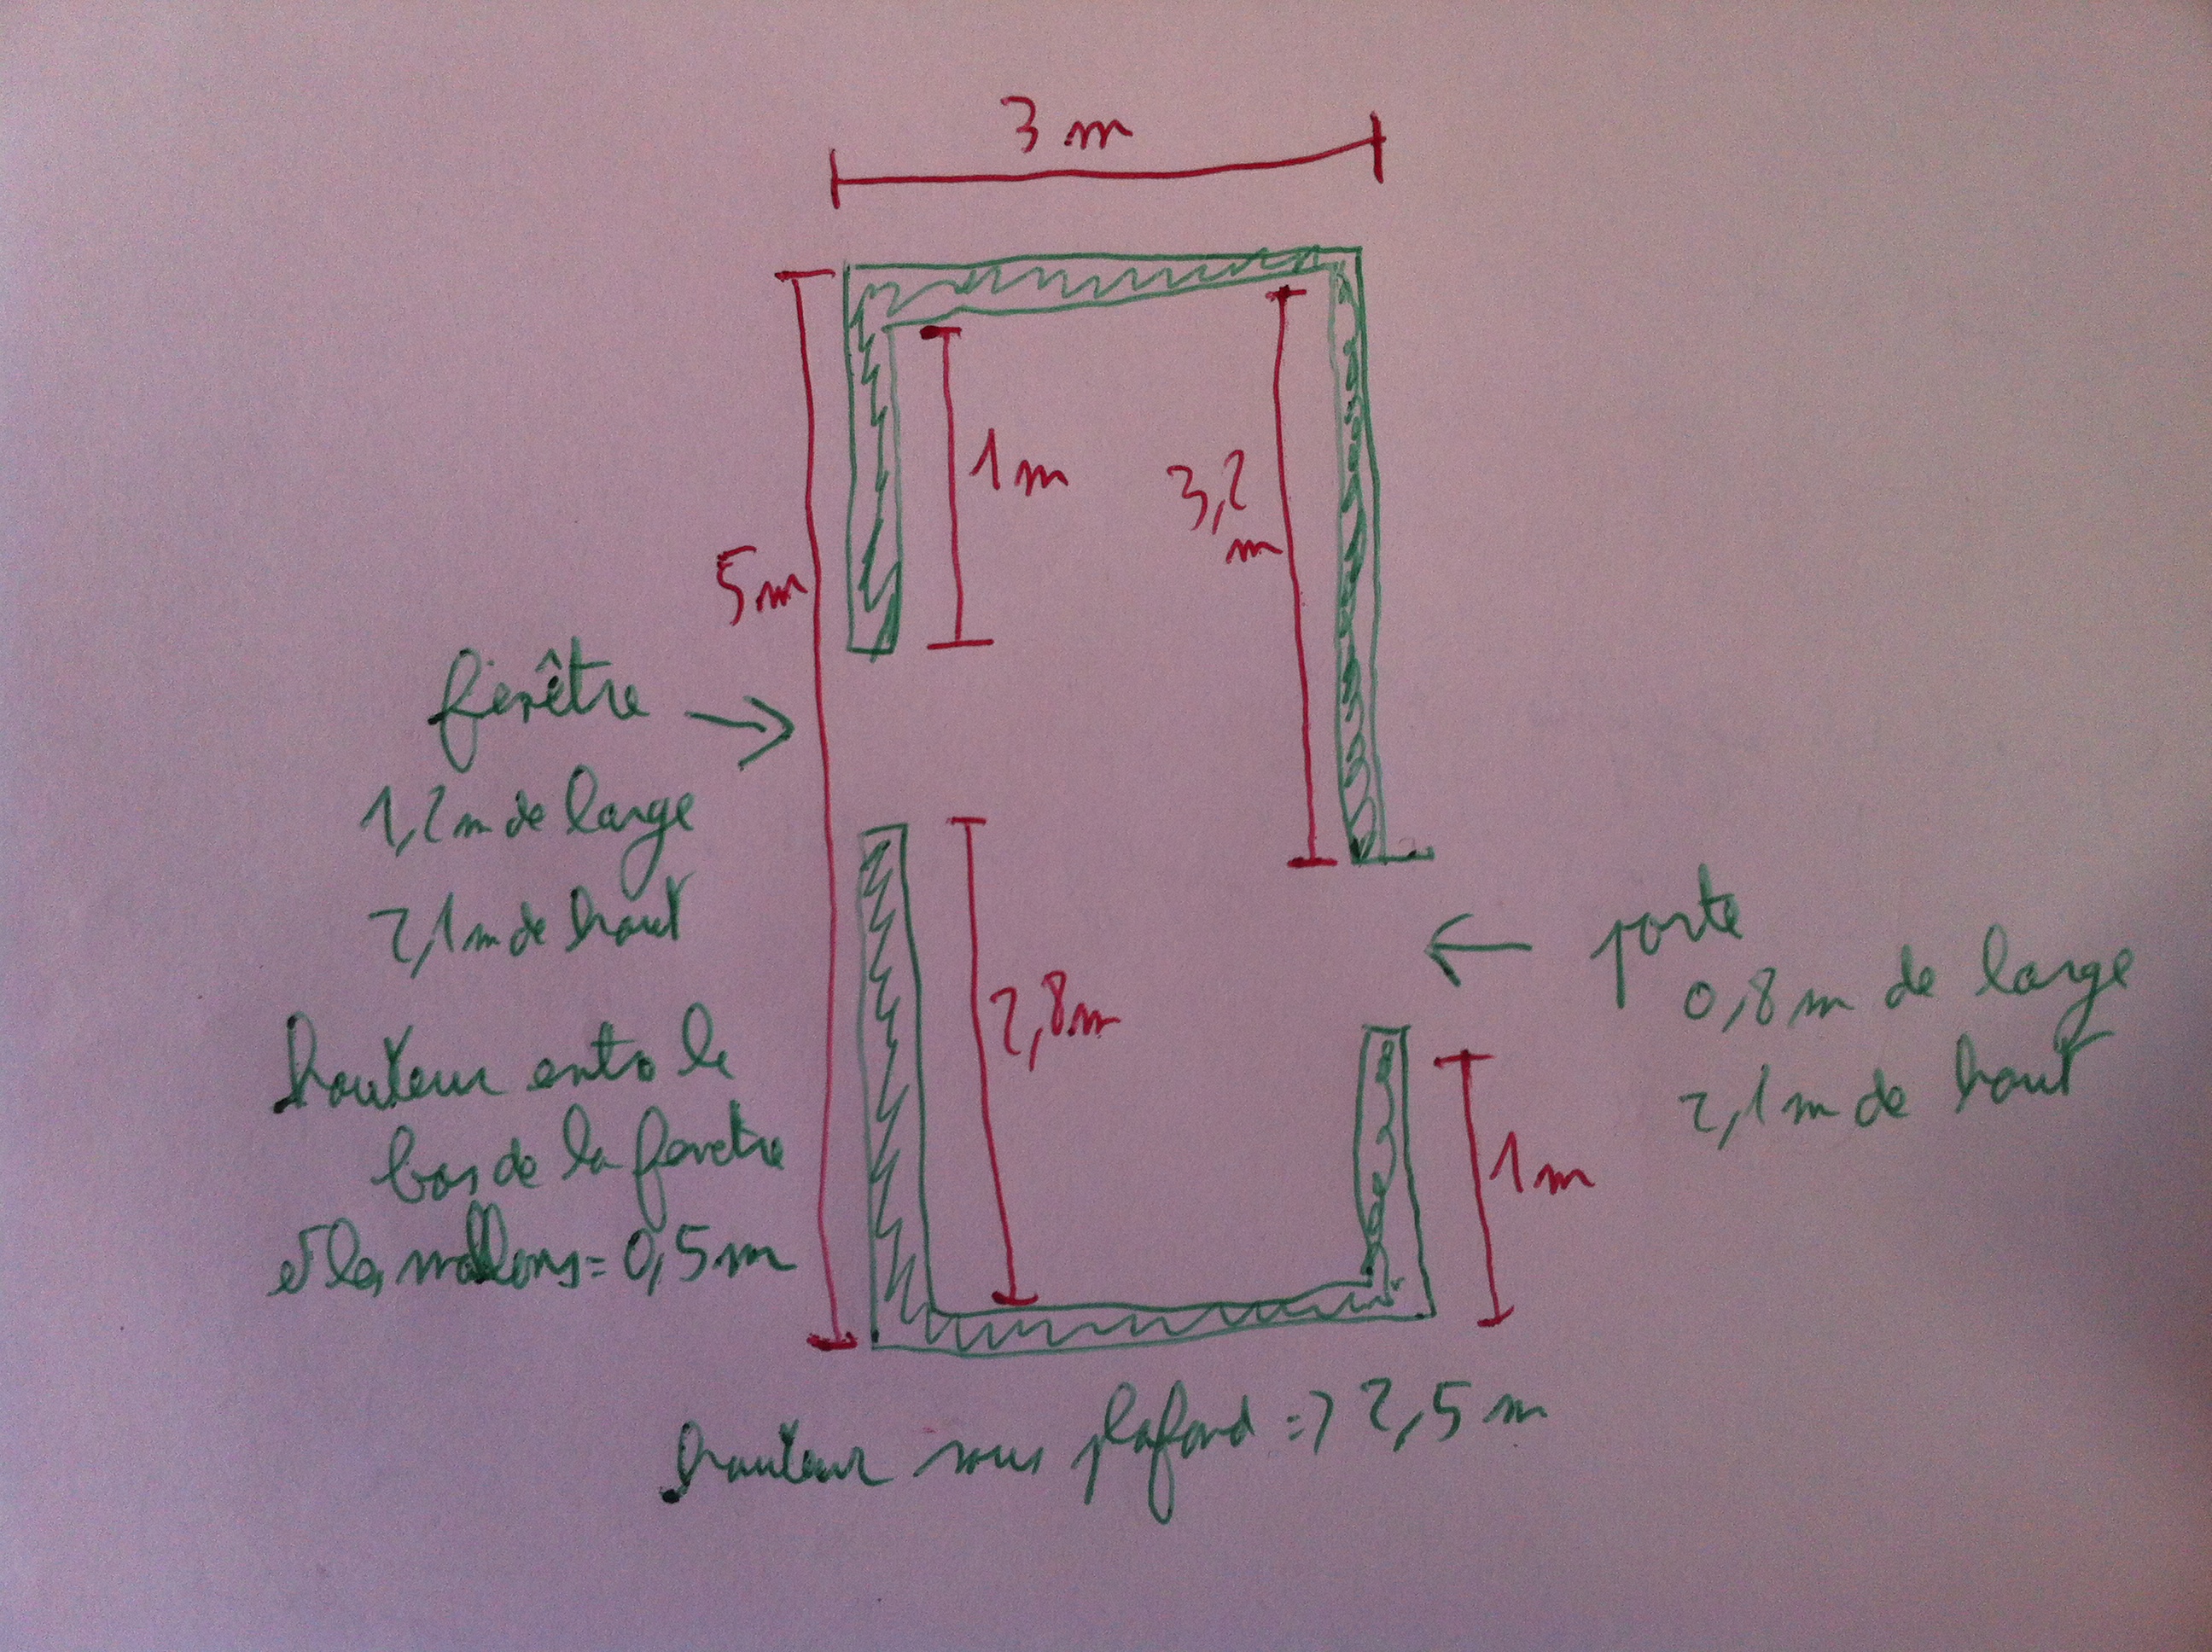 3 m
1 m
3,2
m
5 m
fenêtre
1,2 m de large
2,1 m de haut
hauteur entre le
bas de la fenetre
et les mallons = 0,5 m
2,8 m
porte
0,8 m de large
2,1 m de haut
1 m
hauteur sous plafond => 2,5 m